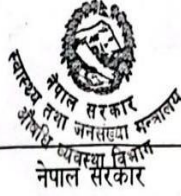 नेपाल सरकार
स्वास्थ्य तथा जनसंख्या मन्त्रालय
औषधि व्यवस्था विभाग
नेपाल सरकार